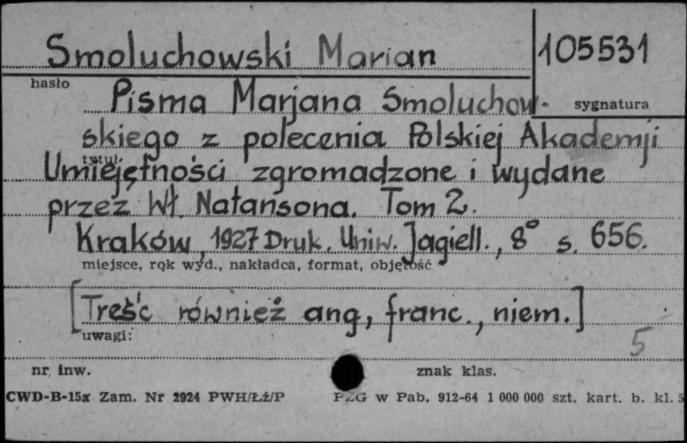 Smoluchowski Marian 105531
hasło sygnatura
Pisma Marjana Smoluchow-
skiego z polecenia Polskiej Akademji
tytuł:
Umiejętności zgromadzone i wydane
przez Wł. Natansona. Tom 2.
Kraków, 1927 Druk. Uniw. Jagiell., 8° s. 656.
miejsce, rok wyd., nakładca, format, objętość
[Treść również ang, franc., niem.]
uwagi:
5
nr inw. znak klas.
CWD-B-15x Zam. Nr 2924 PWH/Łź/P PZG w Pab. 912-64 1 000 000 szt. kart. b. kl. 5